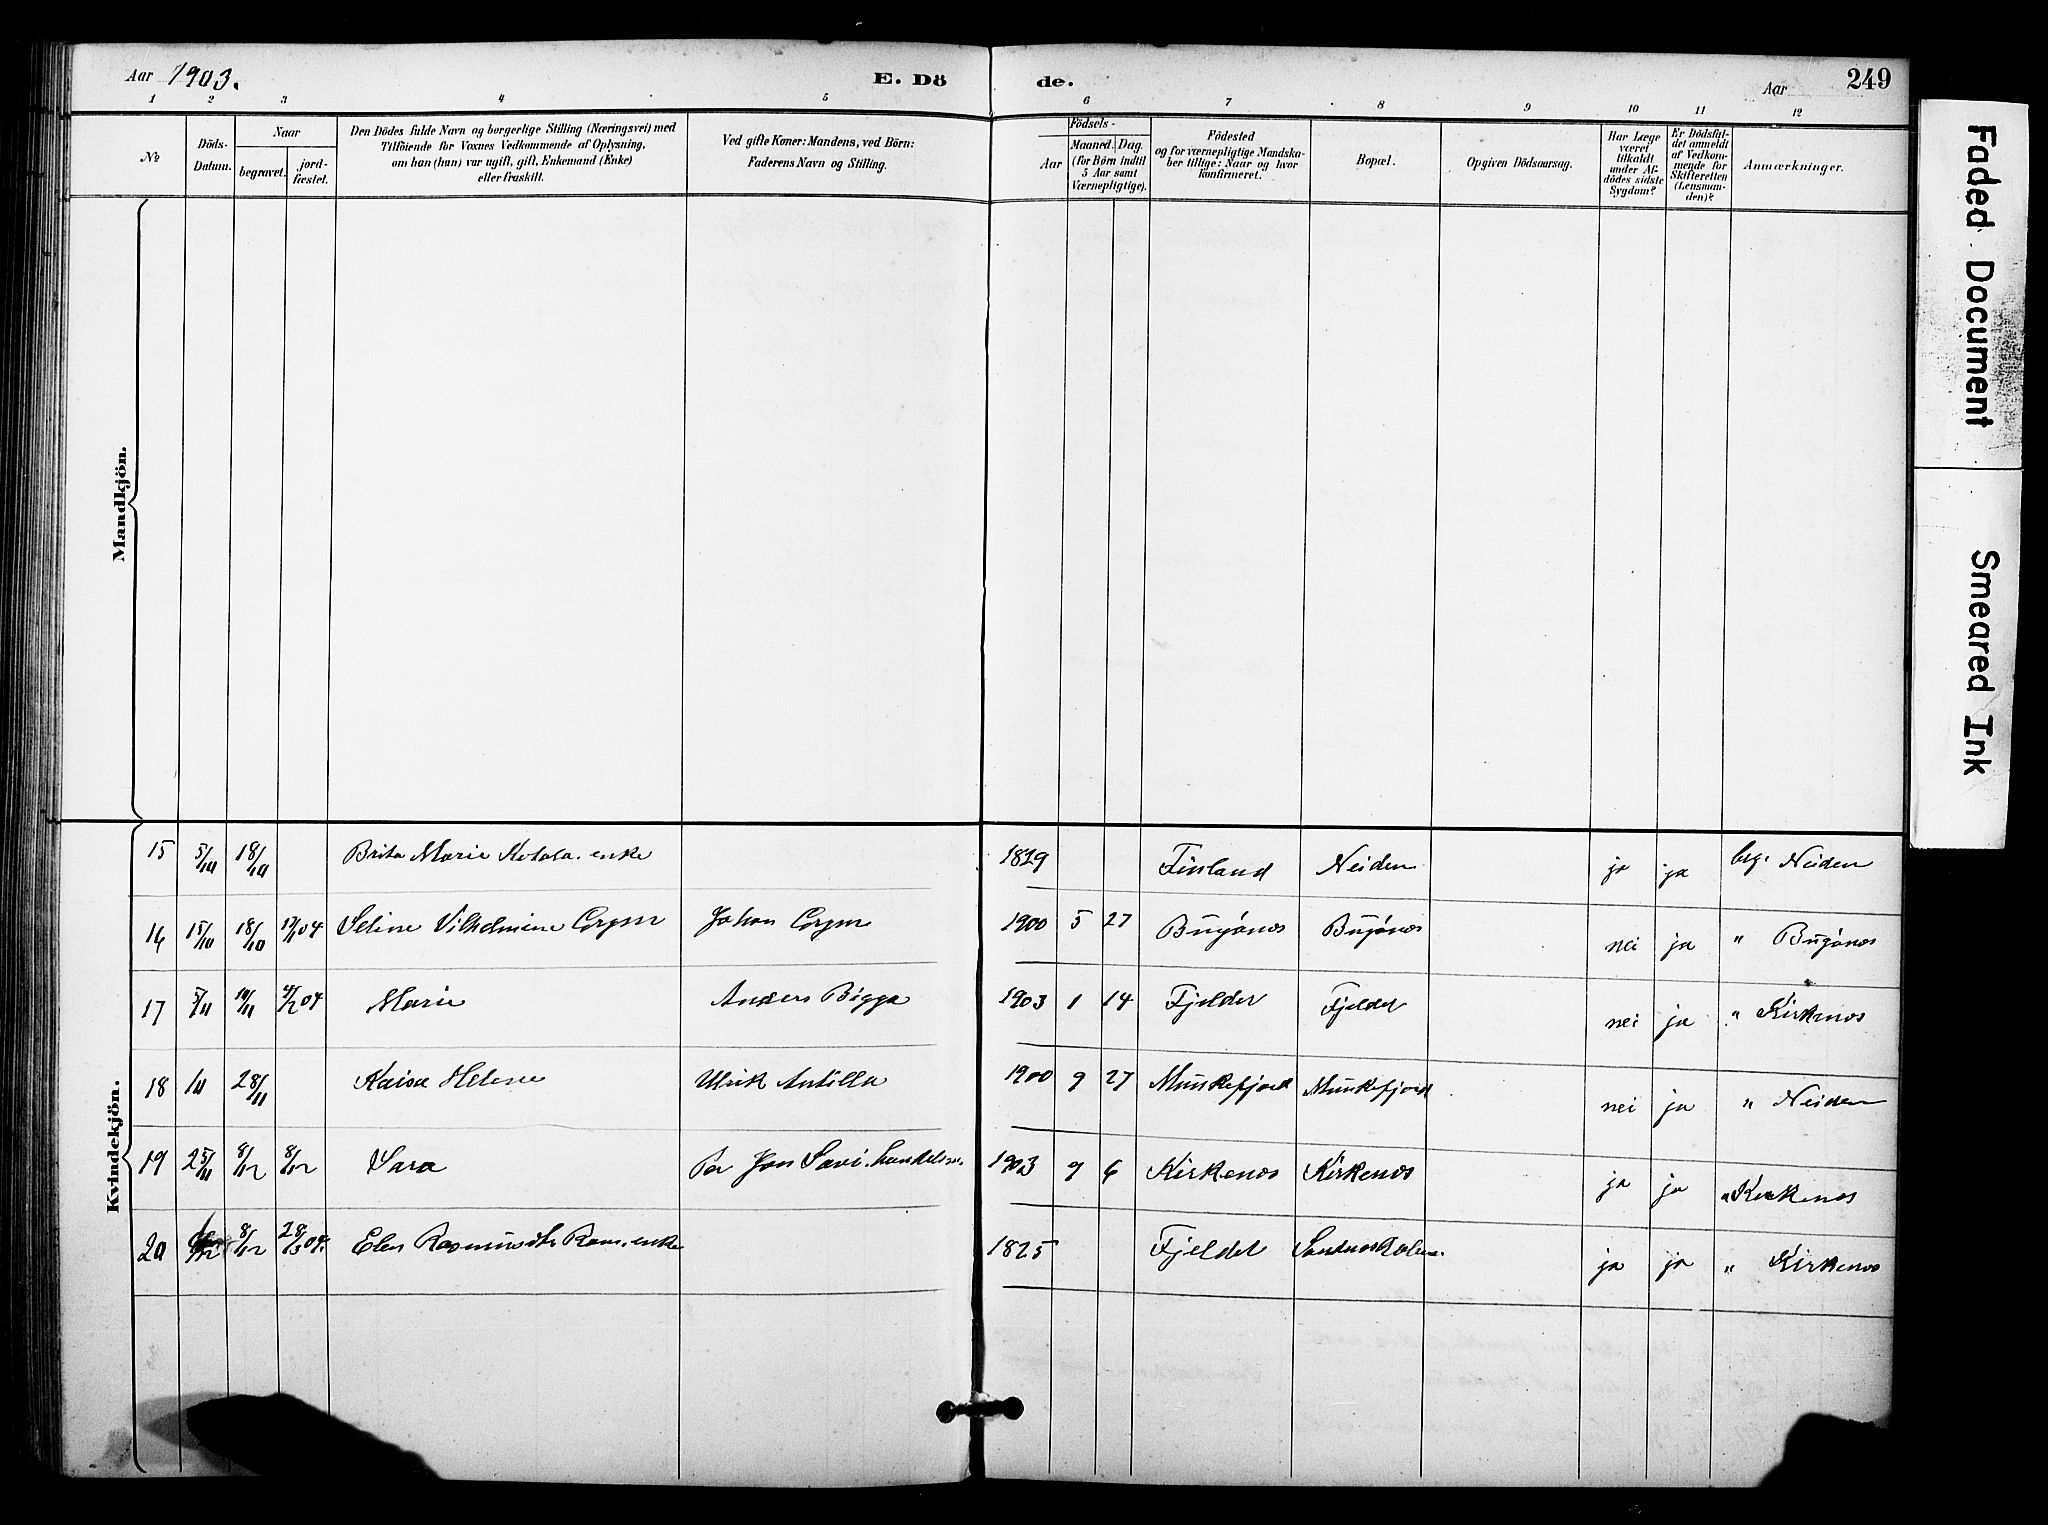 Aar 1903. E. Dö de. Aar 249
1 2 3 4 5 6 7 8 9 10 11 12
No
Döds-Datum.
Naar
begravet.
jord-fæstet.
Den Dödes fulde Navn og borgerlige Stilling (Næringsvei) med
Tilföiende for Voxnes Vedkommende af Oplysning,
om han (hun) var ugift, gift, Enkemand (Enke)
eller fraskilt.
Ved gifte Koner: Mandens, ved Börn:
Faderens Navn og Stilling.
Födsels-
Aar
Maaned. Dag.
(for Börn indtil
5 Aar samt
Værnepligtige).
Födested
og for værnepligtige Mandska-
ber tillige: Naar og hvor
konfirmeret.
Bopæl.
Opgiven Dödsaarsag.
Har Læge
været
tilkaldt
under Af-
dödes sidste
Sygdom?
Er Dödsfal-
det anmeldt
af Vedkom-
mende for
Skifteretten
(Lensman-
den)?
Anmærkninger.
Mandkjön.
Kvindekjön.
15 5/10 18/10 Brita Marie enke 1829 Finland Neiden ja ja beg. Neiden
16 15/10 18/10 Seline Vilhelmine Johan 1900 5 27 Bugönes Bugönes nei ja " Bugönes
17 5/11 Marie Anders Bigga 1903 1 14 Fjeldet Fjeldet nei ja " Kirkenes
18 28/11 Kaisa Helene Ulrik Antilla 1900 9 27 Munkefjord Munkefjord nei ja " Neiden
19 25/11 8/12 8/12 Sara Per Jon Savi. 1903 9 6 Kirkenes Kirkenes ja ja " Kirkenes
20 8/12 Elen enke 1825 Fjeldet ja ja " Kirkenes
Faded Document
Smeared Ink